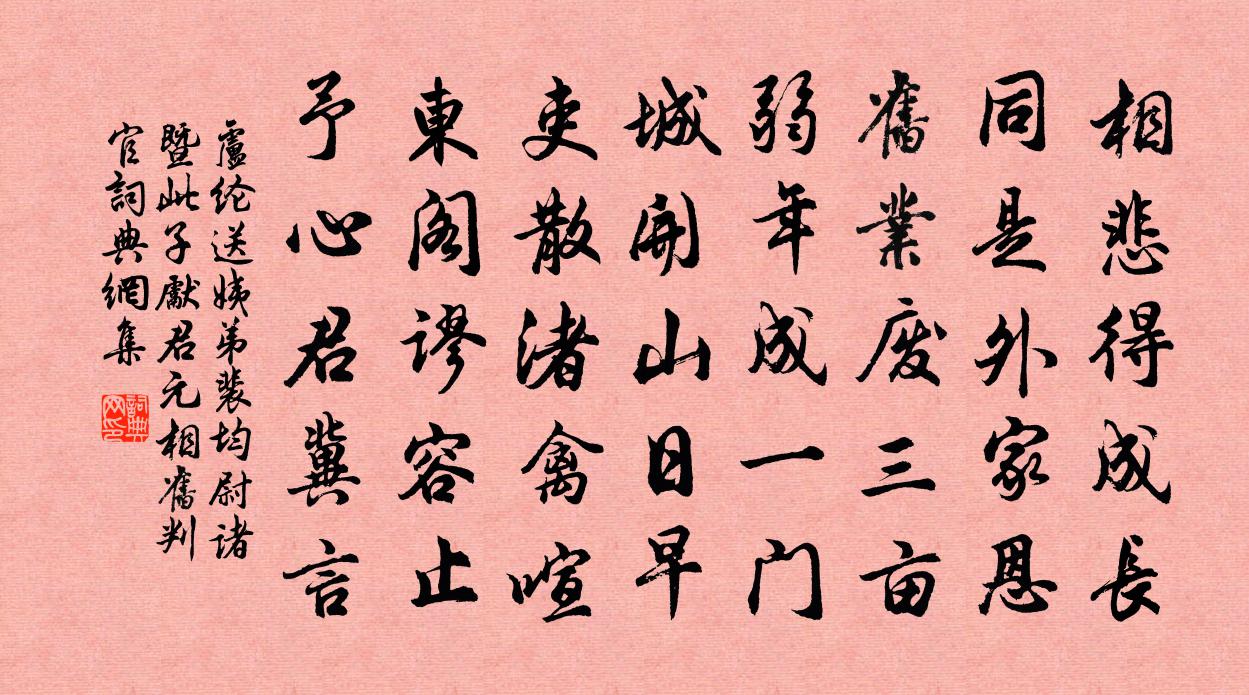 相悲得成長
同是外家恩
舊業废三亩
弱年成一门
城開山日早
吏散渚禽喧
東阁谬容止
予心君冀言
盧纶送姨弟裴均尉诸
暨此子獻君元相舊判
官詞典網集
詞典网印